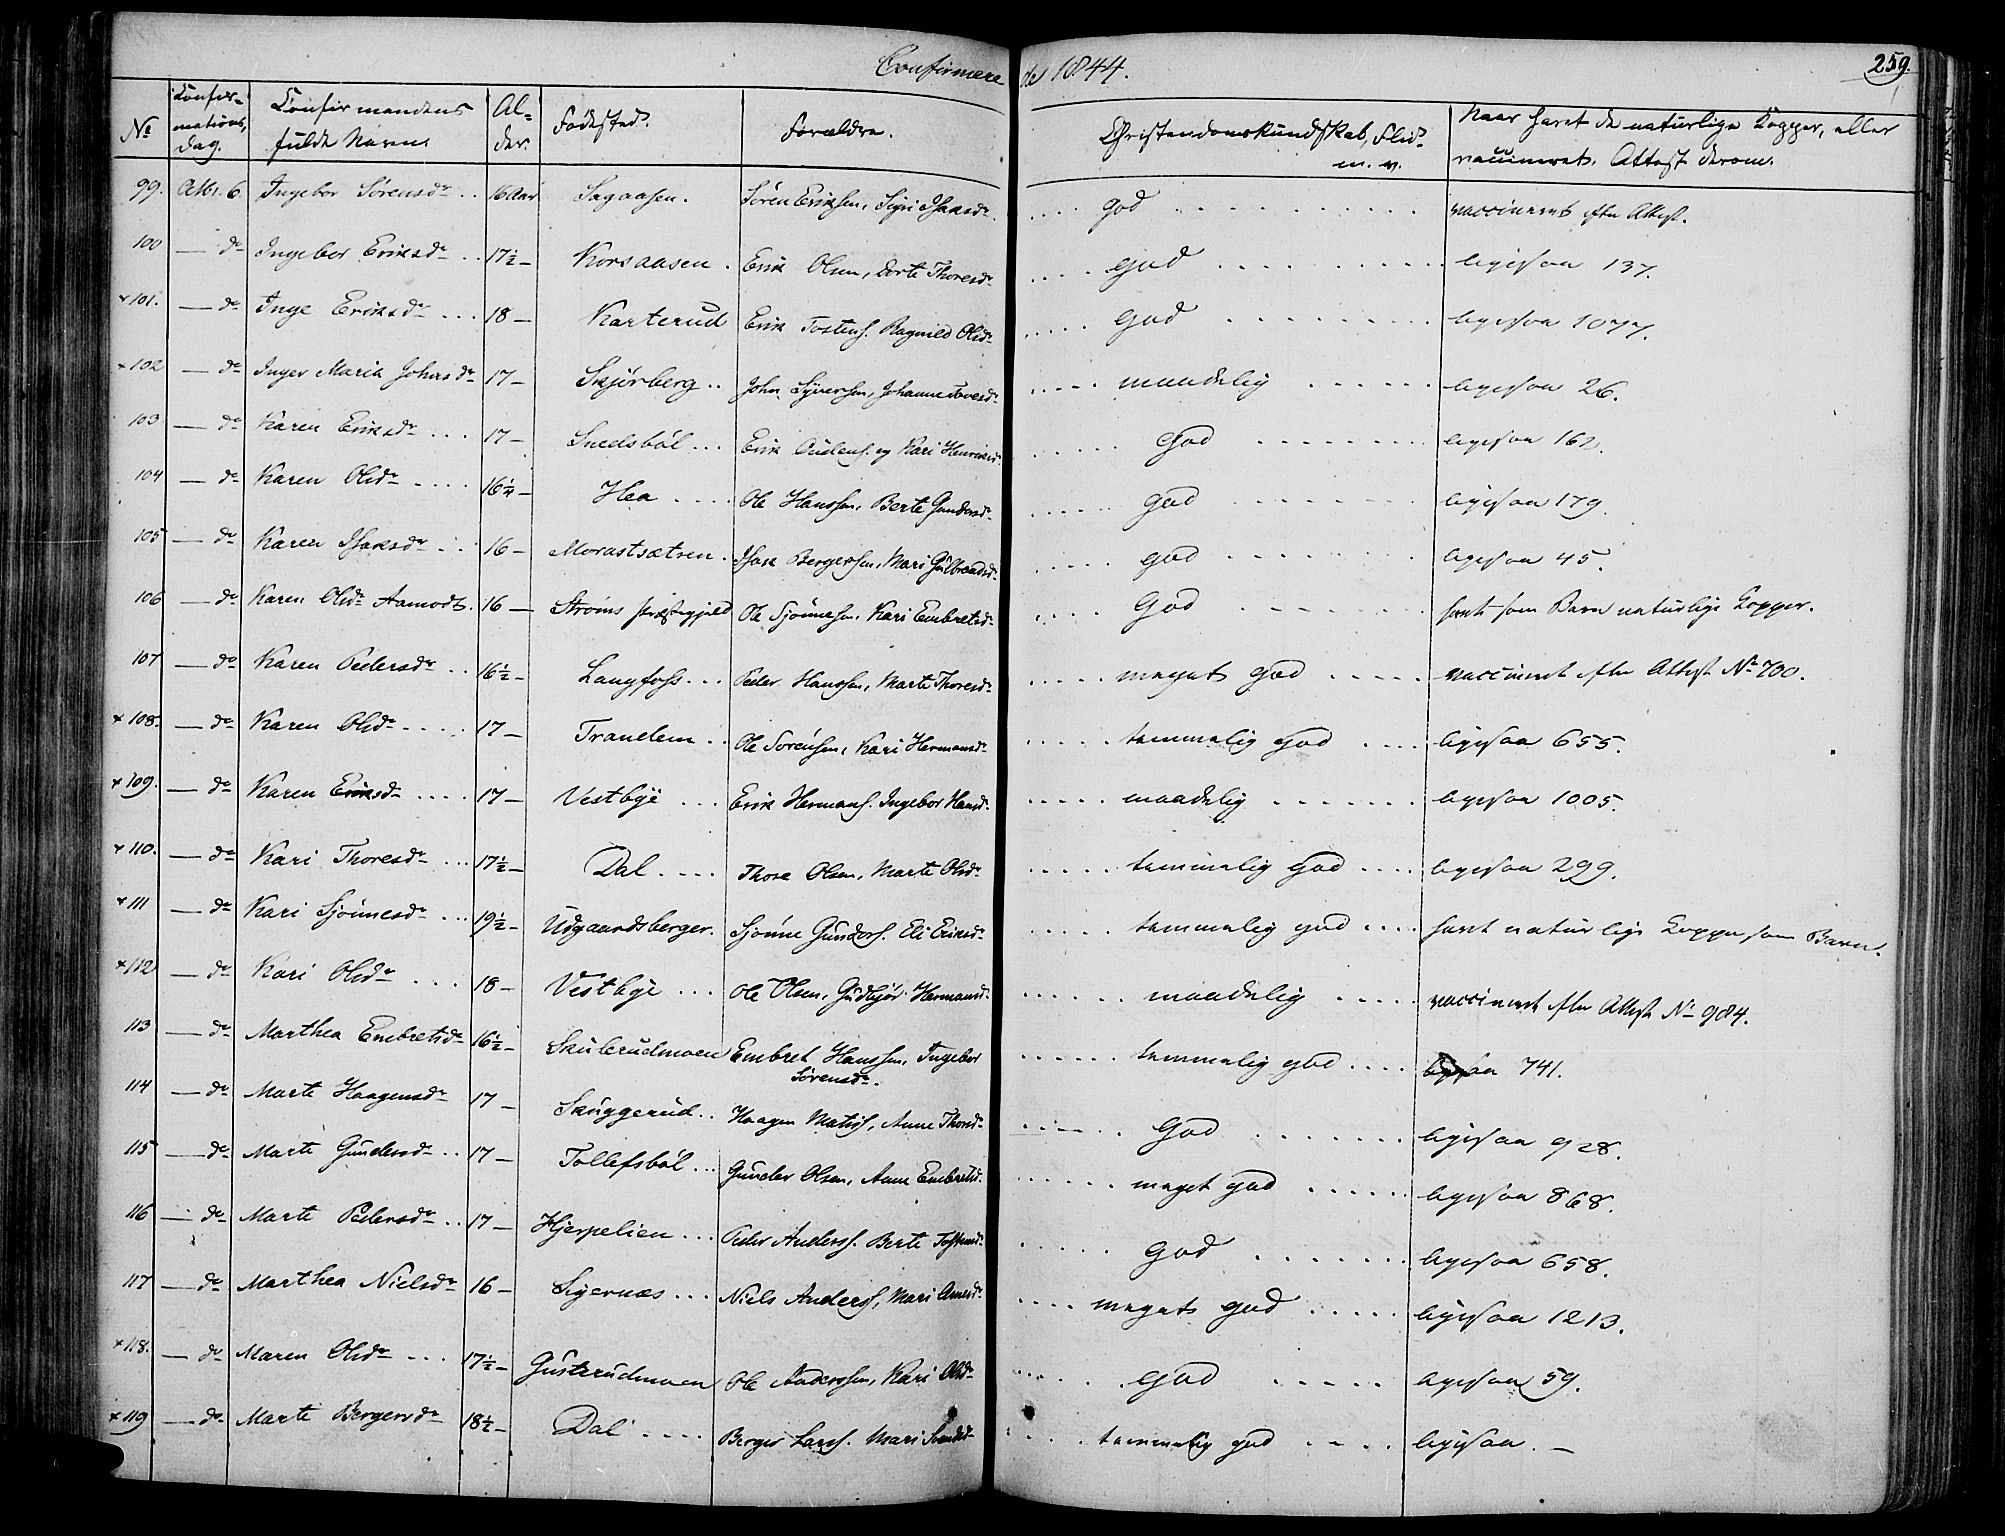 Confirmerede 1844. 259.
No Confirmations, Dag. Confirmandens fulde Navn. Alder. Fødested. Forældre. Christendomskundskab, Flid m. v. Naar havt de naturlige Kopper, eller vaccineret. Attest derom.
99. Octbr. 6. Ingebor Sørensdr .. 16 Aar Sagaasen. Søren Eriksen, Sigri Isaksdr. .... god .......... vaccineret efter Attest.
100 — do Ingebor Eriksdr .. 17½ — Korsaasen. Erik Olsen, Dorte Thoresdr .... god .......... ligesaa 137.
+ 101. — do Inge Eriksdr ... 18 — Karterud Erik Tostens. Ragnild Olsdr .... god ........ ligesaa 1077.
+ 102 — do Inger Maria Johnsdr 17 — Skjørberg .. John Syversen, Johanne Tovesdr .... maadelig ...... ligesaa 26.
103 — do Karen Eriksdr ... 17 — Snedsbøl ... Erik Audens. og Kari Henriksdr ..... god ........ ligesaa 162.
104 — do Karen Olsdr .... 16¼ — Hea .... Ole Hanssen, Berte Gundersdr ..... god ........ ligesaa 179.
105 — do Karen Isaksdr ... 16 — Morastsætren. Isak Bergersen, Mari Gulbrandsdr ..... god ........ ligesaa 45.
106 — do Karen Olsdr Aamodt. 16 — Strøms præstegjeld Ole Sjønnesen, Kari Embretsdr .... God ....... havt som Barn naturlige Kopper.
107 — do Karen Pedersdr .. 16½ — Langfoss ... Peder Hanssen, Marte Thoresdr ..... meget god ..... vaccineret efter Attest No 700.
+ 108. — do Karen Olsdr .... 17 — Trandem .. Ole Sørensen, Kari Hermansdr ..... temmelig god .... ligesaa 655.
+ 109. — do Karen Eriksdr .... 17 — Vestbye ... Erik Hermans. Ingebor Hansdr ..... maadelig ....... ligesaa 1005.
+ 110. — do Kari Thoresdr ... 17½ — Dal .... Thore Olsen, Marte Olsdr ..... temmelig god .... ligesaa 299.
+ 111 — do Kari Sjønnesdr ... 19½ — Udgaardsberget. Sjønne Gunders. Eli Eriksdr ..... temmelig god .... havt naturlige Kopper som Barn.
+ 112 — do Kari Olsdr ... 18 — Vestbye ... Ole Olsen, Gudbjør Hermansdr. ..... maadelig ..... vaccineret efter Attest No 984.
113 — do Marthea Embretsdr 16½ — Skulerudmoen Embret Hanssen, Ingebor Sørensdr. ...... temmelig god .... ligesaa 741.
114 — do Marte Haagensdr 17 — Skuggerud .. Haagen Matis, Anne Thorsdr ..... God ....... ligesaa 928.
115 — do Marte Gundersdr .. 17 — Tollefsbøl ... Gunder Olsen, Anne Embretsdr. ...... meget god ...... ligesaa 868.
116 — do Marte Pedersdr .. 17 — Hjerpelien ... Peder Anderss. Berte Tostensdr ..... God ....... ligesaa 658.
117 — do Marthea Nielsdr 16 — Sijernæs ... Niels Anderss, Mari Arnesdr .... meget god ..... ligesaa 1213.
+ 118. — do Maren Olsdr ... 17½ — Gusterudmoen Ole Anderssen, Kari Olsdr ..... god ..... ligesaa 59.
+ 119 — do Marte Bergersdr 18½ — Dal .... Berger Larss. Mari Svendsdr .... temmelig god .... ligesaa. —